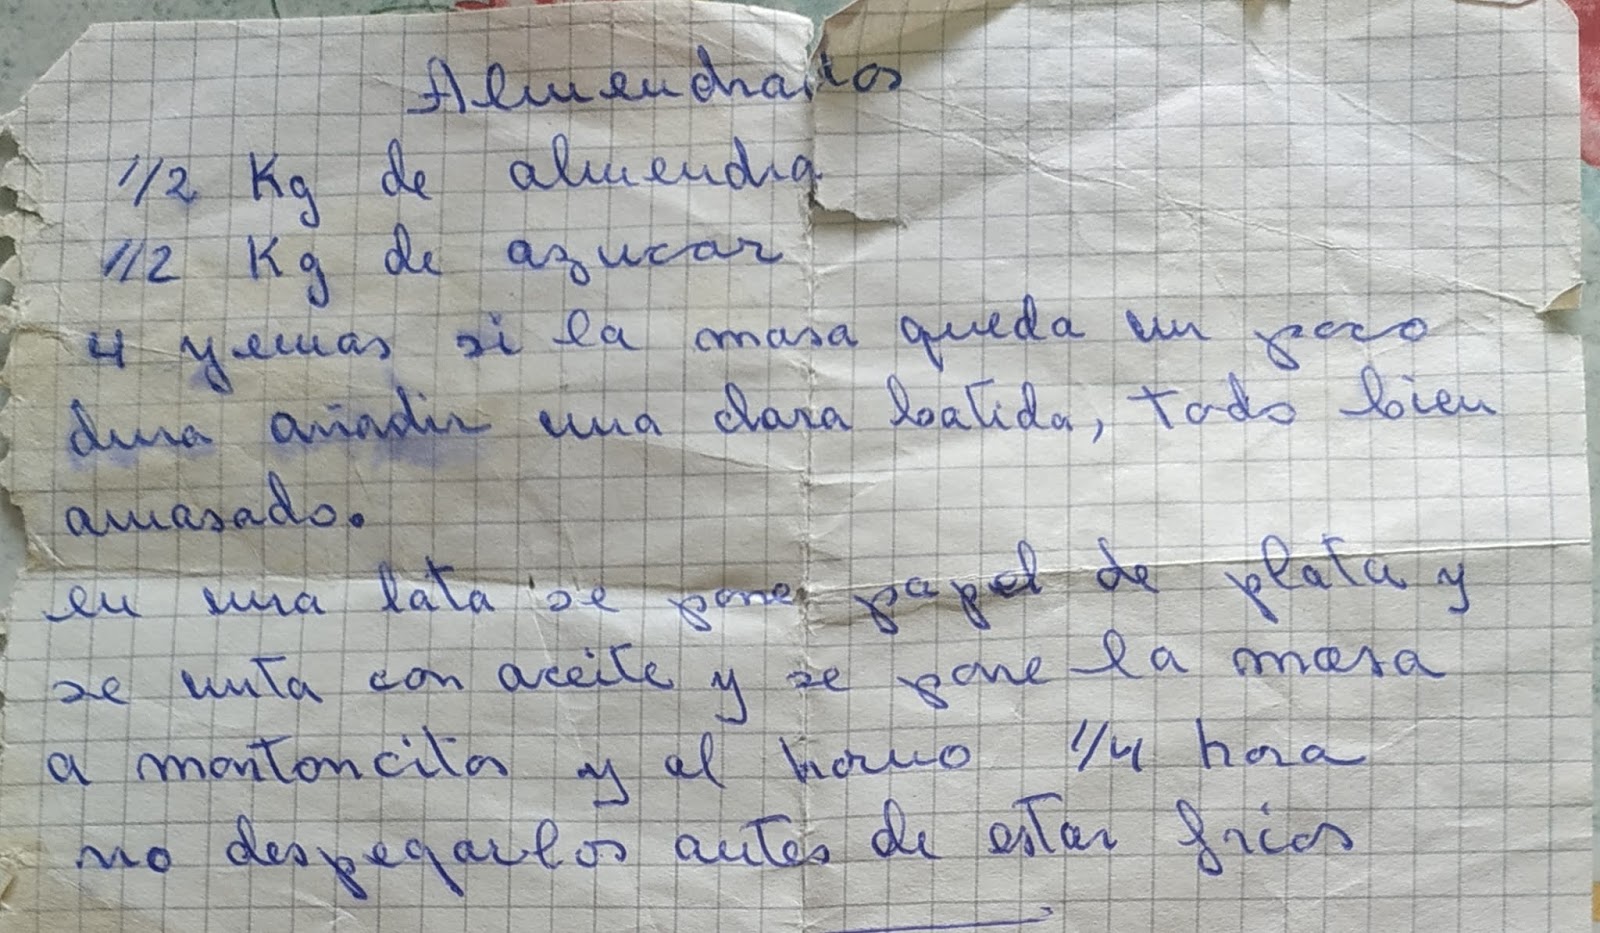 Almendraitos
1/2 Kg de almendra
1/2 Kg de azucar
4 yemas si la masa queda un poco
dura añadir una clara batida, todo bien
amasado.
en una lata se pone papel de plata y
se unta con aceite y se pone la masa
a montoncitos y al horno 1/4 hora
no despegarlos antes de estar frios